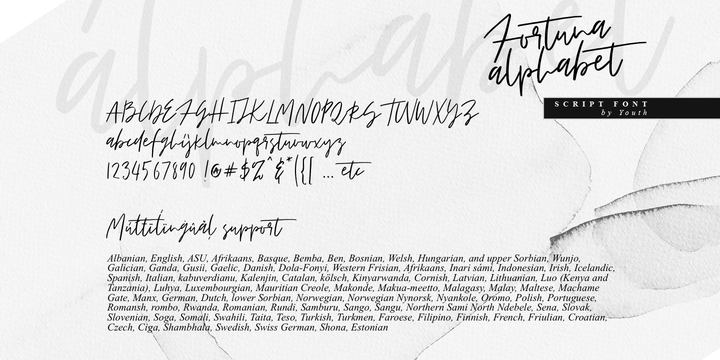 alphabet
Fortuna
alphabet
SCRIPT FONT
by Youth
ABCDEFGHIJKLMNOPQRSTUVWXYZ
abcdefghijklmnopqrstuvwxyz
1234567890 !@#$%^&*({[ ... etc
Multilingual support
Albanian, English, ASU, Afrikaans, Basque, Bemba, Ben, Bosnian, Welsh, Hungarian, and upper Sorbian, Wunjo,
Galician, Ganda, Gusii, Gaelic, Danish, Dola-Fonyi, Western Frisian, Afrikaans, Inari sámi, Indonesian, Irish, Icelandic,
Spanish, Italian, kabuverdianu, Kalenjin, Catalan, kölsch, Kinyarwanda, Cornish, Latvian, Lithuanian, Luo (Kenya and
Tanzania), Luhya, Luxembourgian, Mauritian Creole, Makonde, Makua-meetto, Malagasy, Malay, Maltese, Machame
Gate, Manx, German, Dutch, lower Sorbian, Norwegian, Norwegian Nynorsk, Nyankole, Oromo, Polish, Portuguese,
Romansh, rombo, Rwanda, Romanian, Rundi, Samburu, Sango, Sangu, Northern Sami North Ndebele, Sena, Slovak,
Slovenian, Soga, Somali, Swahili, Taita, Teso, Turkish, Turkmen, Faroese, Filipino, Finnish, French, Friulian, Croatian,
Czech, Ciga, Shambhala, Swedish, Swiss German, Shona, Estonian